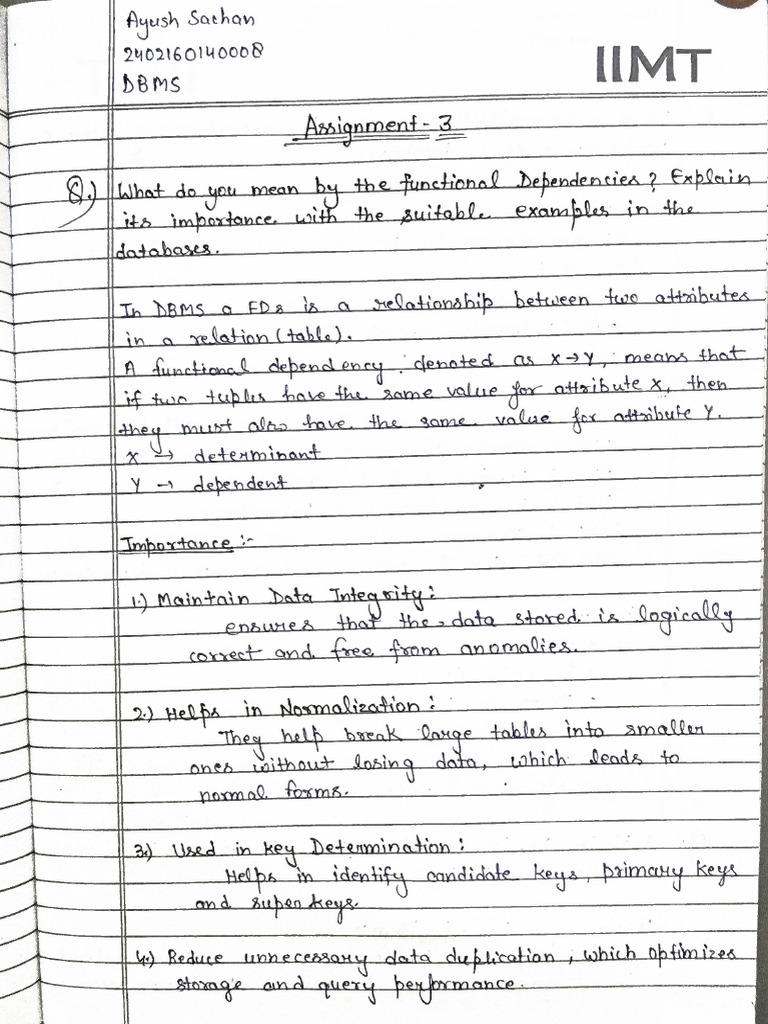 Ayush Sachan
2402160140008
DBMS
IIMT
Assignment - 3
Q.) What do you mean by the functional Dependencies? Explain
its importance with the suitable examples in the
databases.
In DBMS a FDs is a relationship between two attributes
in a relation (table).
A functional dependency, denoted as X→Y, means that
if two tuples have the same value for attribute X, then
they must also have the same value for attribute Y.
X → determinant
Y → dependent
Importance :-
1.) Maintain Data Integrity:
ensures that the data stored is logically
correct and free from anomalies.
2.) Helps in Normalization:
They help break large tables into smaller
ones without losing data, which leads to
normal forms.
3.) Used in key Determination:
Helps in identify candidate keys, primary keys
and super keys.
4.) Reduce unnecessary data duplication, which optimizes
storage and query performance.